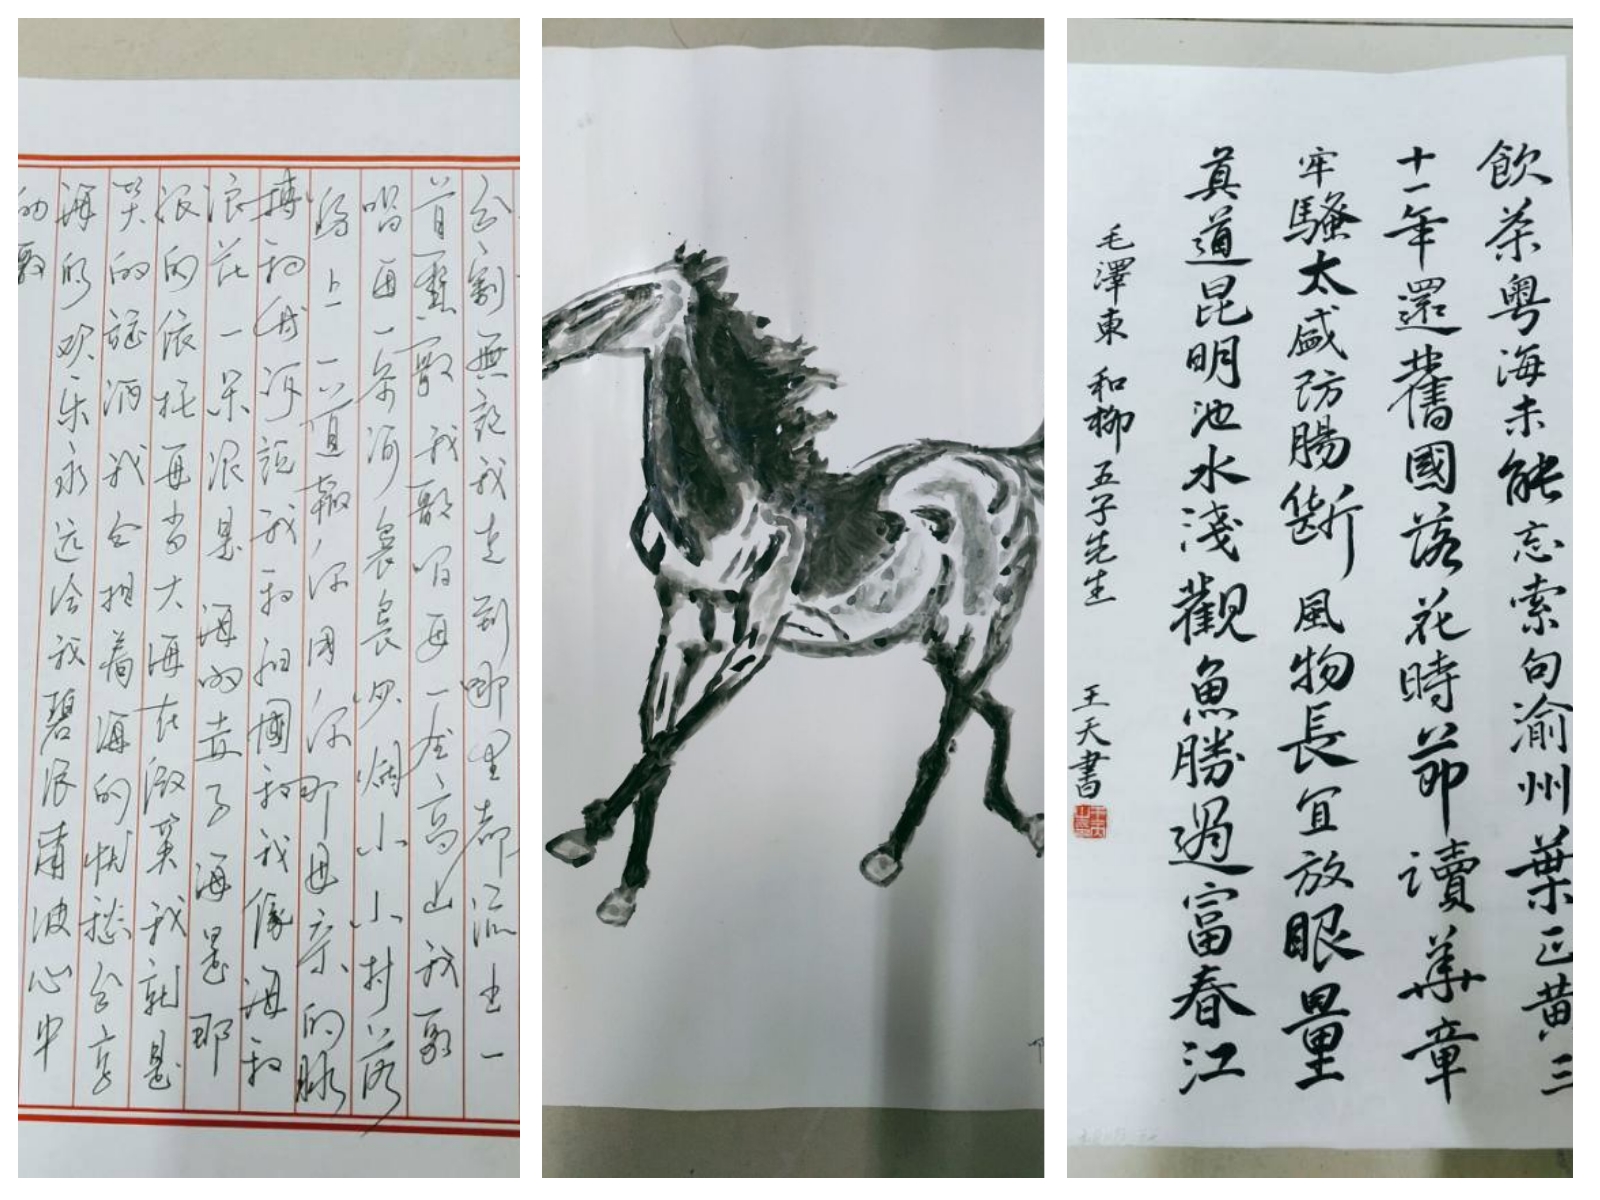 分割無論我走到哪里都流出一
首赞歌我歌唱每一座高山我歌
唱每一条河袅袅炊烟小小村落
路上一道辙你用你那母亲的脉
搏和我诉說我和祖國和我像海和
浪花一朵浪是海的赤子海是那
浪的依托每当大海在微笑我就是
笑的旋涡我分担着海的忧愁分享
海的欢乐永远给我碧浪清波心中
的歌
飲茶粤海未能忘索句渝州葉正黄三
十一年還舊國落花時節讀華章
牢騷太盛防腸斷風物長宜放眼量
真道昆明池水淺觀魚勝過富春江
毛澤東和柳五子先生 王天書